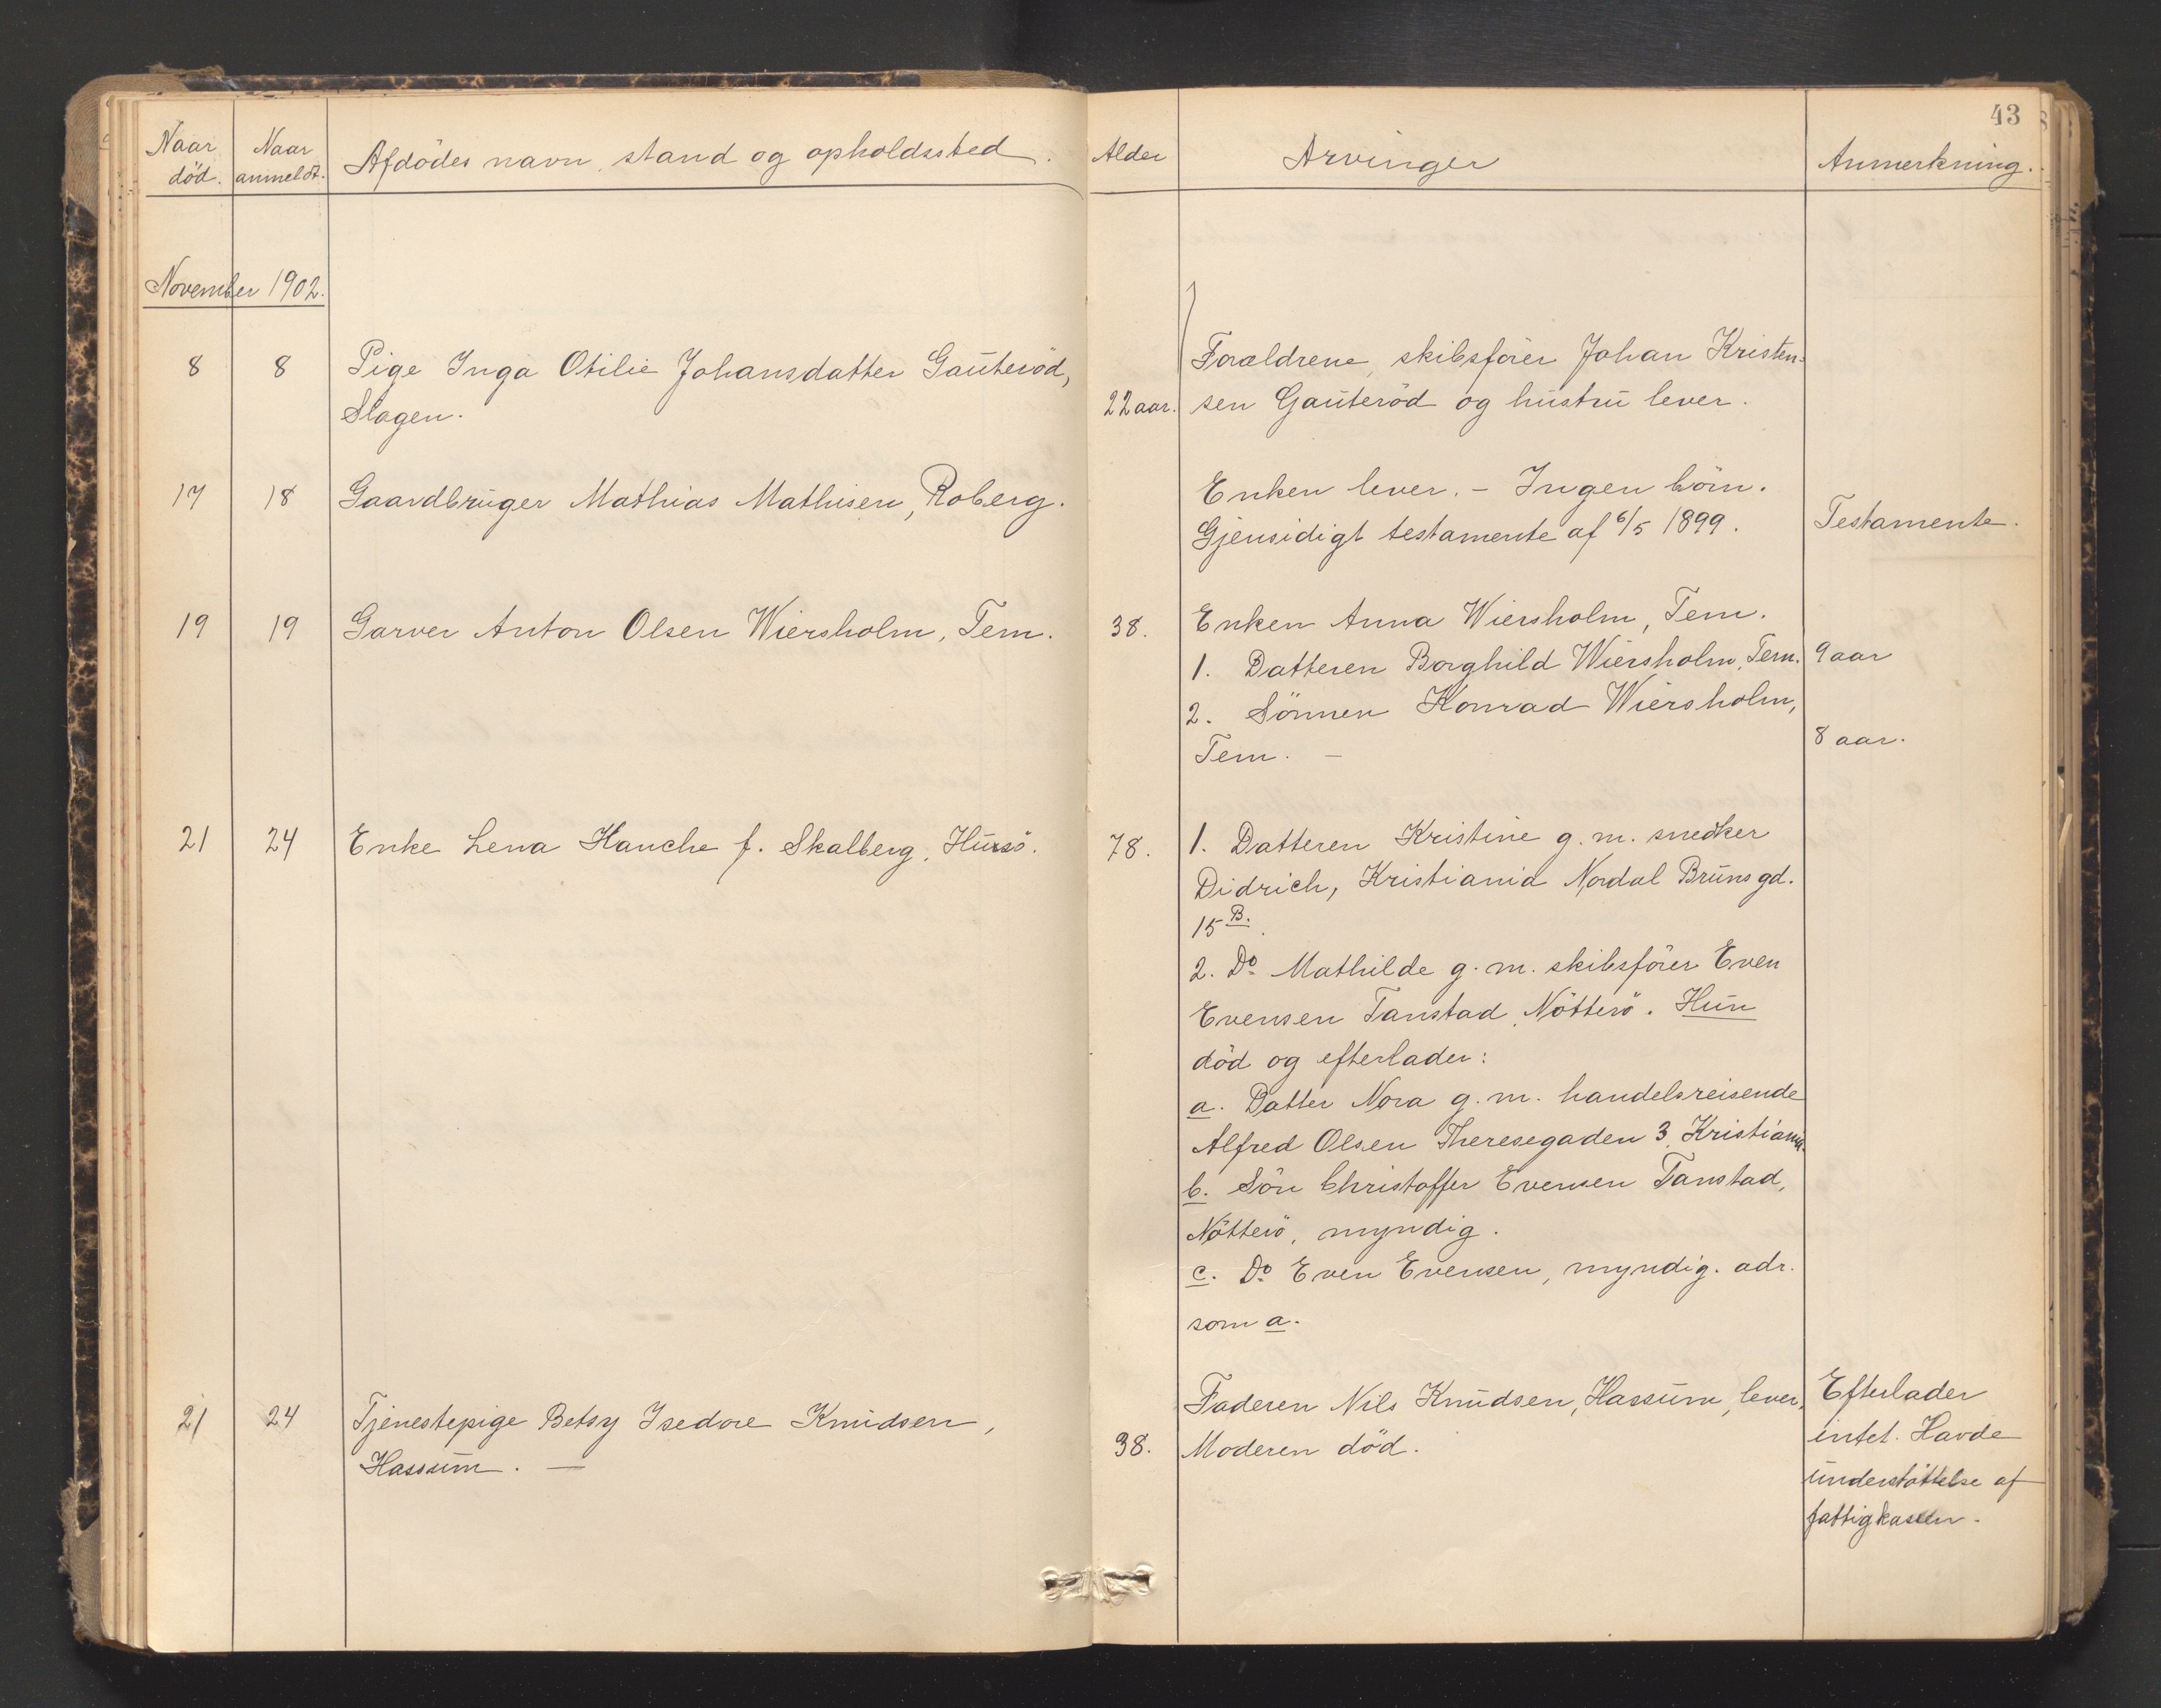 43
Naar död. Naar anmeldt. Afdödes navn, stand og opholdssted. Alder Arvinger Anmerkning.
November 1902.
8 8 Pige Inga Otilie Johansdatter Gauteröd,
Slagen.
22 aar.
Forældrene, skibsförer Johan Kristen-
sen Gauteröd og hustru lever.
17 18 Gaardbruger Mathias Mathisen, Roberg.
Enken lever. - Ingen börn.
Gjensidigt testamente af 6/5 1899.
Testamente.
19 19 Garver Anton Olsen Wiersholm, Tem.
38.
Enken Anna Wiersholm, Tem.
1. Datteren Borghild Wiersholm, Tem. 9 aar
2. Sönnen Konrad Wiersholm,
Tem. - 8 aar.
21 24 Enke Lena Hanche f. Skalberg, Husö.
78.
1. Datteren Kristine g. m. snedker
Didrich, Kristiania Nordal Bruns gd.
15 B.
2. Do Mathilde g. m. skibsförer Even
Evensen Tanstad, Nötterö. Hun
död og efterlader:
a. Datter Nora g. m. handelsreisende
Alfred Olsen Theresegaden 3, Kristiania.
b. Sön Christoffer Evensen Tanstad,
Nötterö, myndig.
c. Do Even Evensen, myndig. adr.
som a.
21 24 Tjenestepige Betsy Isedore Knudsen,
Hassum. -
38.
Faderen Nils Knudsen, Hassum, lever,
Moderen död.
Efterlader
intet. Havde
understöttelse af
fattigkassen.